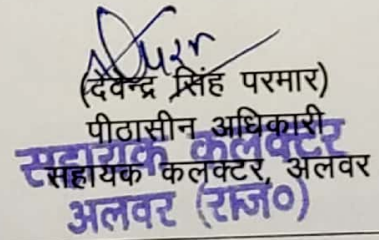 (देवेन्द्र सिंह परमार)
पीठासीन अधिकारी
सहायक कलक्टर
सहायक कलक्टर, अलवर
अलवर (राज०)